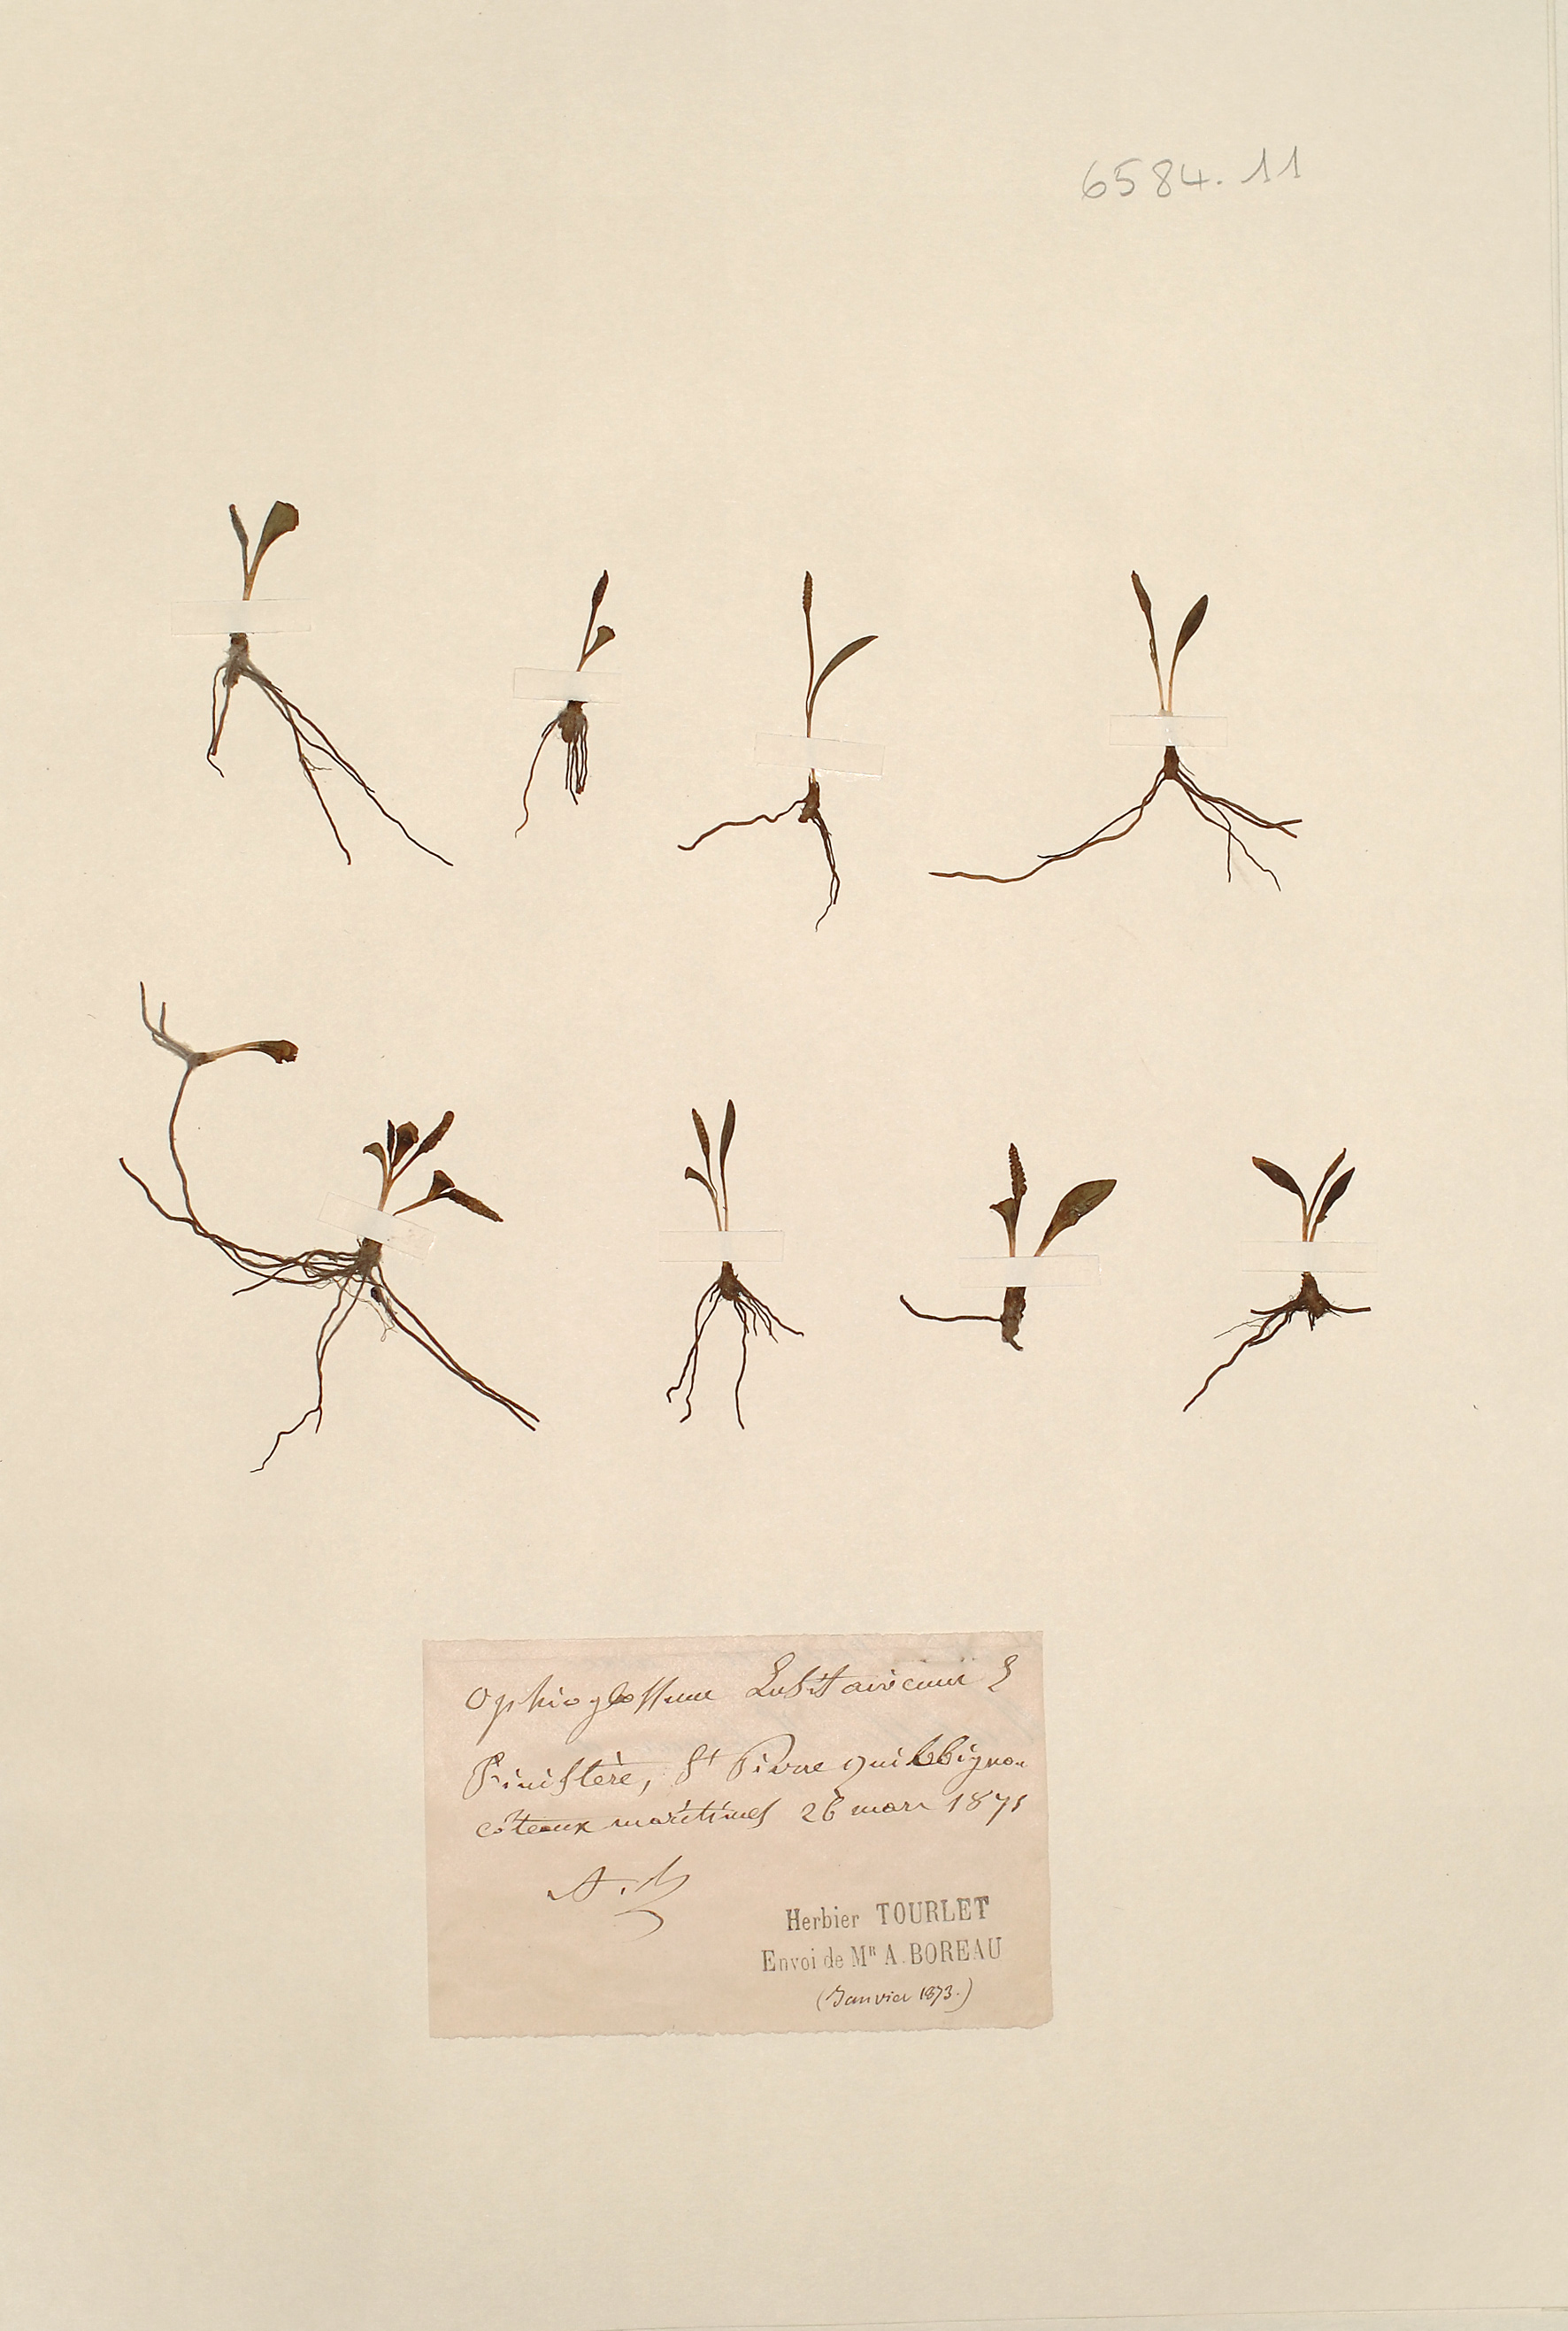 6584.11
Ophioglossum Lusitanicum L
Finistère, St Pierre quilbignon
côteaux maritimes 26 mars 1871
Herbier TOURLET
Envoi de MR A. BOREAU
(Janvier 1873.)